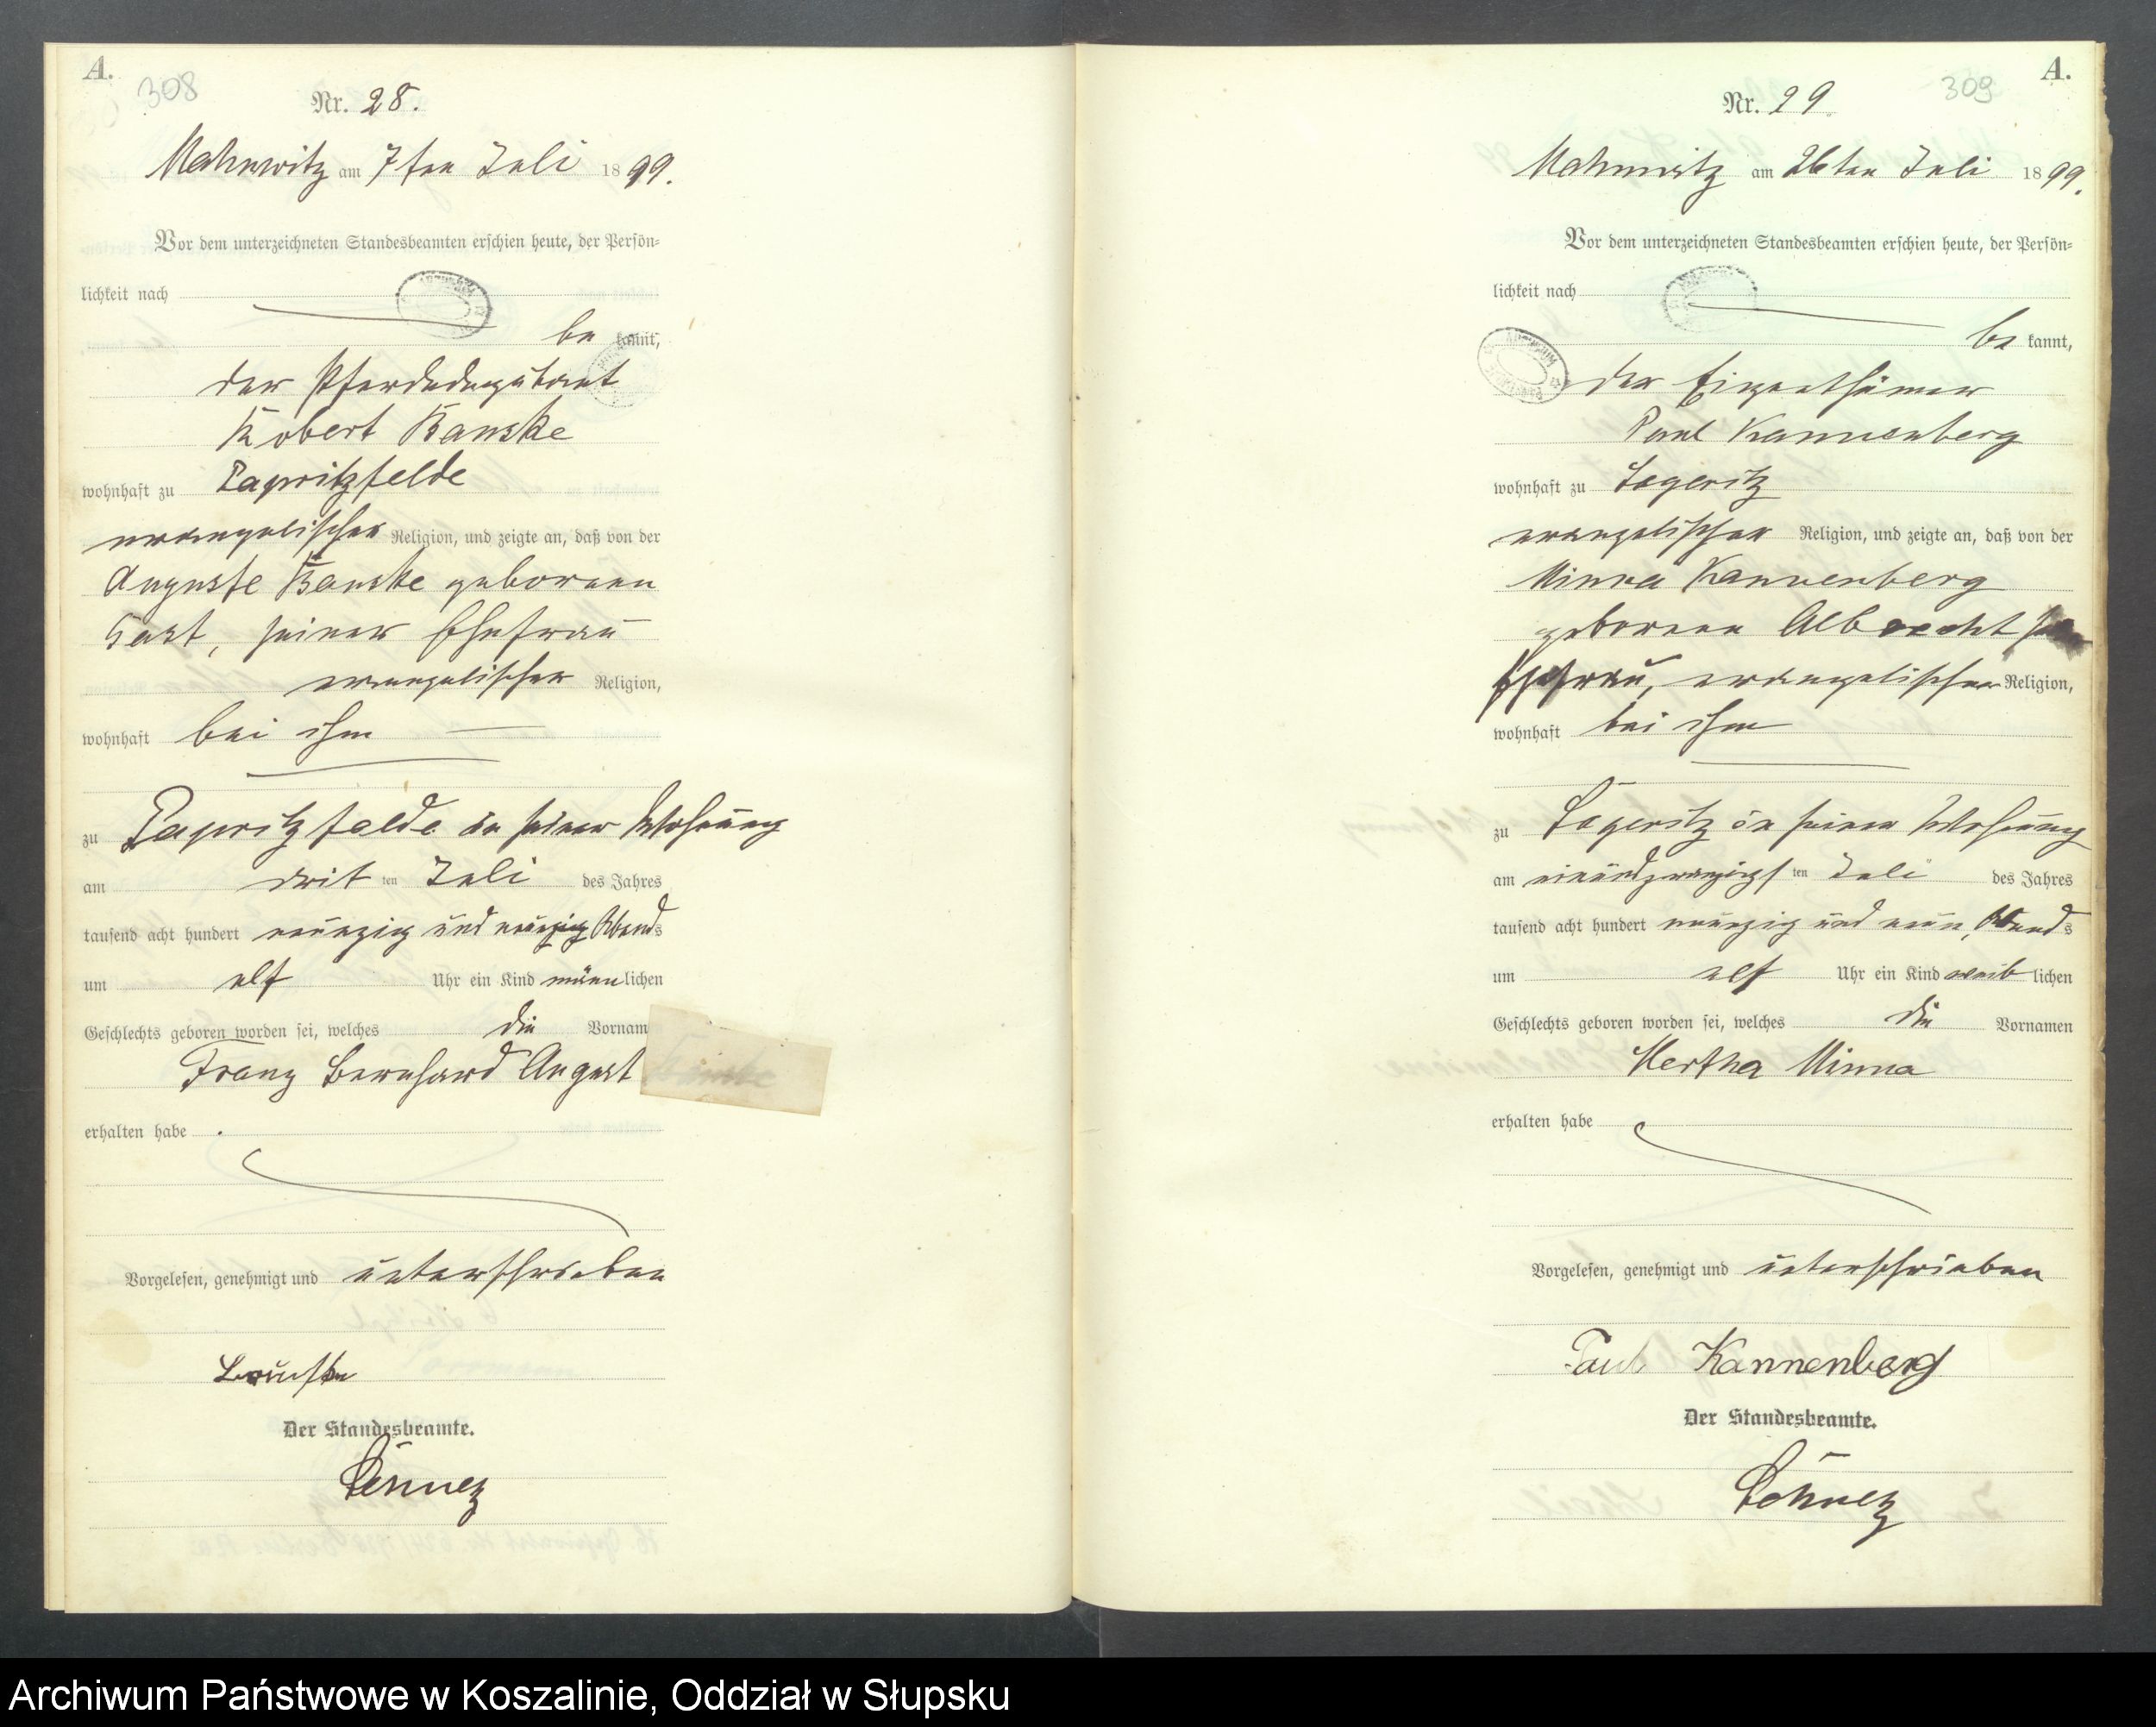 A.
308
Nr. 28.
Mahnwitz am 7ten Juli 1899.
Vor dem unterzeichneten Standesbeamten erschien heute, der Persön=
lichkeit nach
be kannt,
der
Robert Banske
wohnhaft zu Papritzfelde
evangelischer Religion, und zeigte an, daß von der
Auguste Banske geborenen
Gast, seiner Ehefrau
evangelischer Religion,
wohnhaft bei ihm
zu Papritzfelde in seiner Wohnung
am dritten Juli des Jahres
tausend acht hundert neunzig und Abends
um elf Uhr ein Kind männlichen
Geschlechts geboren worden sei, welches die Vornam
Franz Bernhard August
erhalten habe.
Vorgelesen, genehmigt und unterschrieben
Der Standesbeamte.
A.
309
Nr. 29
Mahnwitz am 26ten Juli 1899.
Vor dem unterzeichneten Standesbeamten erschien heute, der Persön=
lichkeit nach
be kannt,
der Eigenthümer
Paul Kannenberg
wohnhaft zu Zogeritz
evangelischer Religion, und zeigte an, daß von der
Minna Kannenberg
geborenen Albrecht
Ehefrau, evangelischer Religion,
wohnhaft bei ihm
zu Zogeritz in seiner Wohnung
am einundzwanzigsten Juli des Jahres
tausend acht hundert neunzig und neun, Abends
um elf Uhr ein Kind weiblichen
Geschlechts geboren worden sei, welches die Vornamen
Hertha Minna
erhalten habe
Vorgelesen, genehmigt und unterschrieben
Paul Kannenberg
Der Standesbeamte.
Archiwum Państwowe w Koszalinie, Oddział w Słupsku